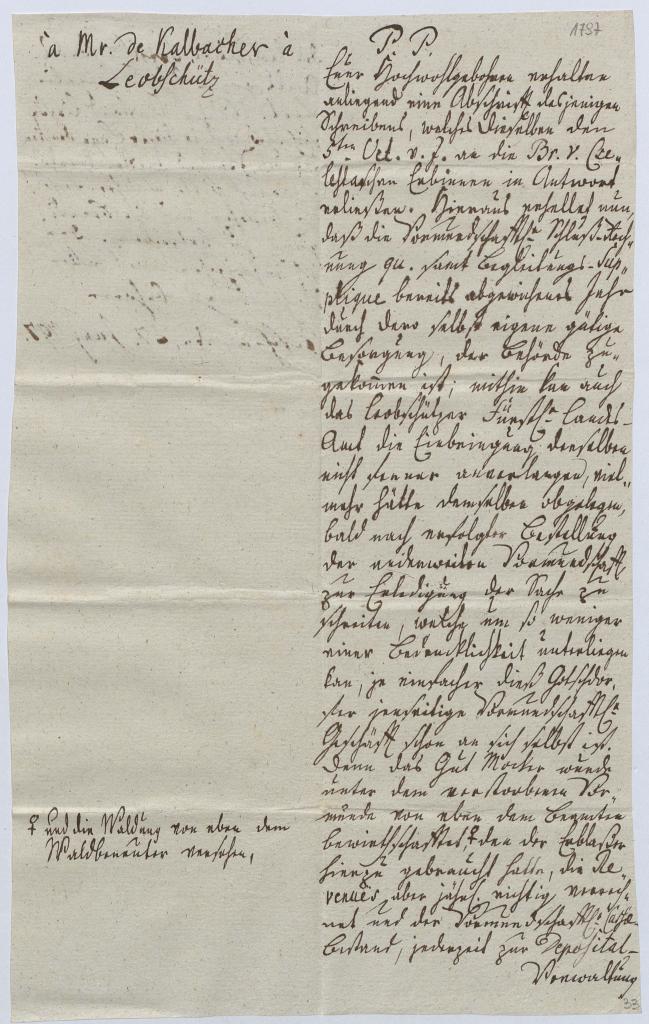 1787
à Mr. de Kalbacher à
Leobschütz
P. P.
Euer Hochwohlgebohren erhalten
anliegend eine Abschrifft desjenigen
Schreibens, welches Dieselben den
5ten Oct. v. J. an die Br. v.
Erbinnen in Antwort
erließen. Hieraus erhellet nun,
daß die Vormundschafftl. Schluß-Rech-
nung qu. samt Begleitungs-Sup-
plique bereits abgewichenes Jahr
durch dero selbst eigene gütige
Besorgung, der Behörde zu-
gekommen ist; mithin kan auch
das Leobschützer Fürstl. Landes-
Amt die Einbringung derselben
nicht ferner anverlangen, viel-
mehr hätte demselben obgelegen,
bald nach erfolgter Bestellung
der anderweiten Vormundschafft
zur Erledigung der Sache zu
schreiten, welche um so weniger
einer Bedencklichkeit unterliegen
kan, je einfacher dieß Gotschdor-
fer jenseitige Vormundschafftl.
Geschäfft schon an sich selbst ist.
Denn das Gut Mocker wurde
unter dem verstorbenen Vor-
munde von eben dem Beamten
bewirthschafftet, ♀ den der Erblaßer
hierzu gebraucht hatte, die Re-
venües aber jährl. richtig verrech-
net und der Vormundschafftl. Cassa-
Bestand, jederzeit zur Deposital-
Verwaltung
♀ und die Waldung von eben dem
Waldbereuter versehen,
33